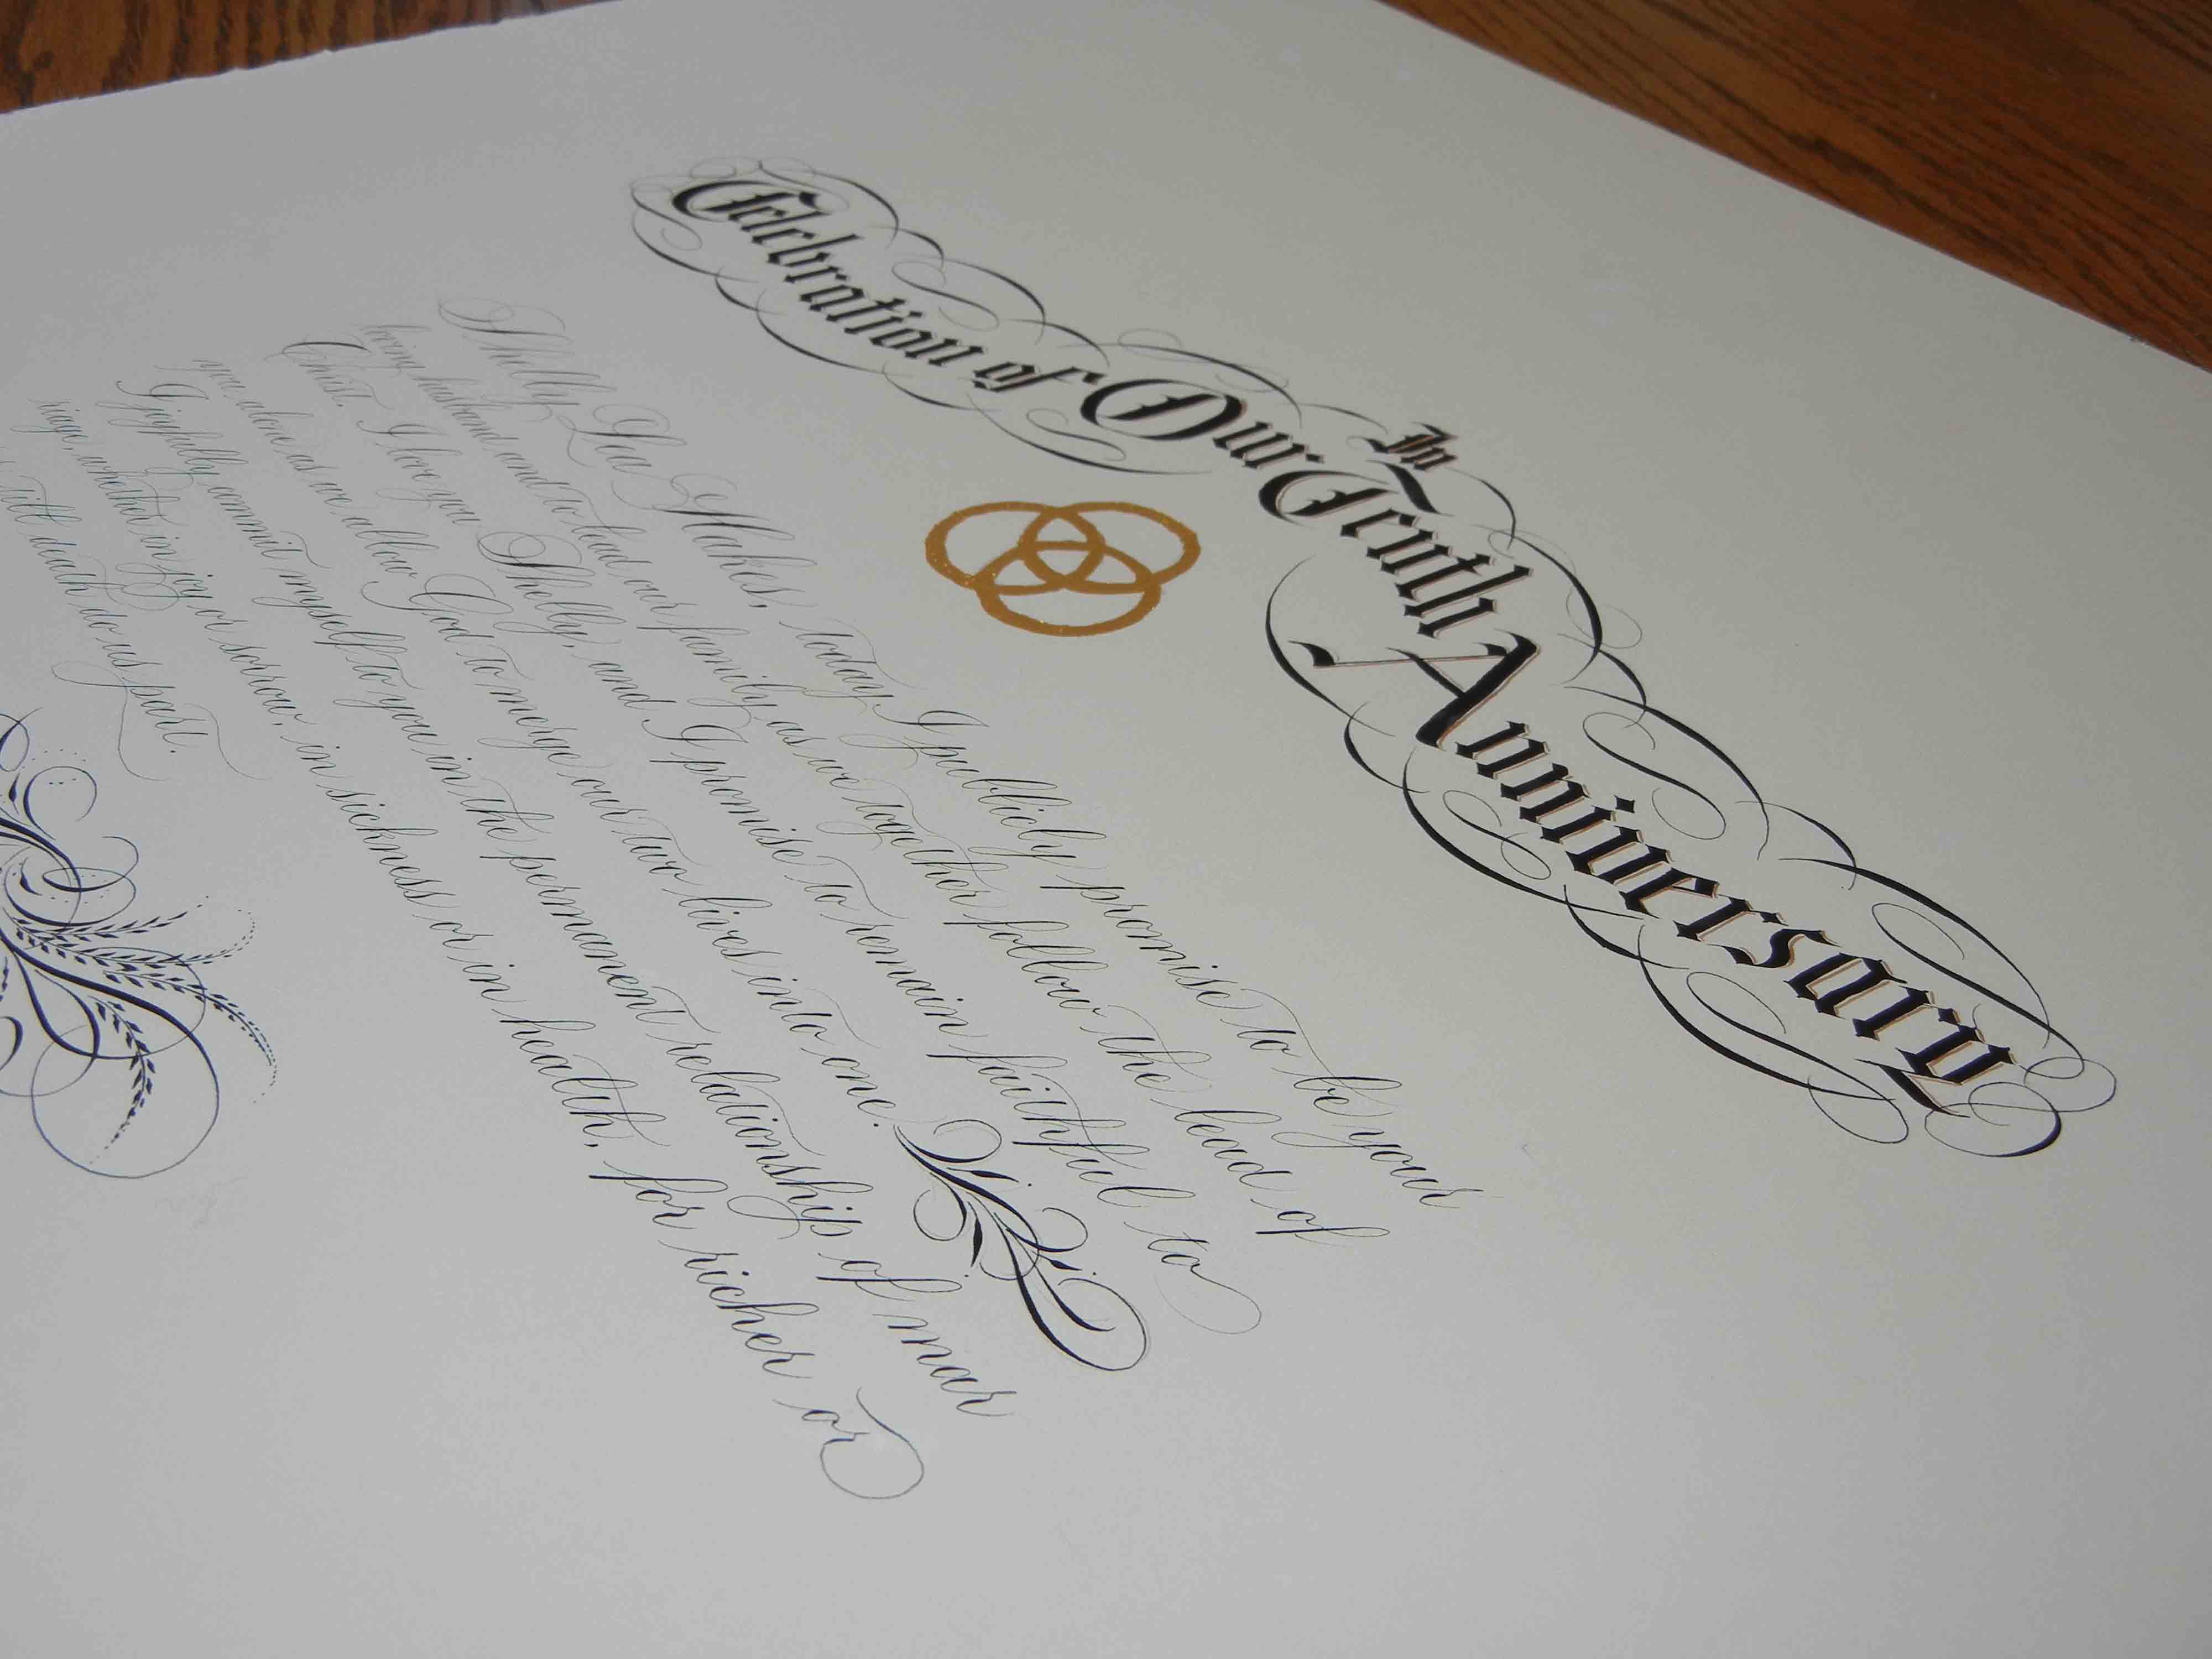 In
Celebration of Our Tenth Anniversary
Shelly Lea Hakes, today, I publicly promise to be your
loving husband and to lead our family as we together follow the lead of
Christ. I love you Shelly, and I promise to remain faithful to
you alone as we allow God to merge our two lives into one.
I joyfully commit myself to you in the permanent relationship of mar
riage, whether in joy or sorrow, in sickness or in health, for richer or
till death do us part.